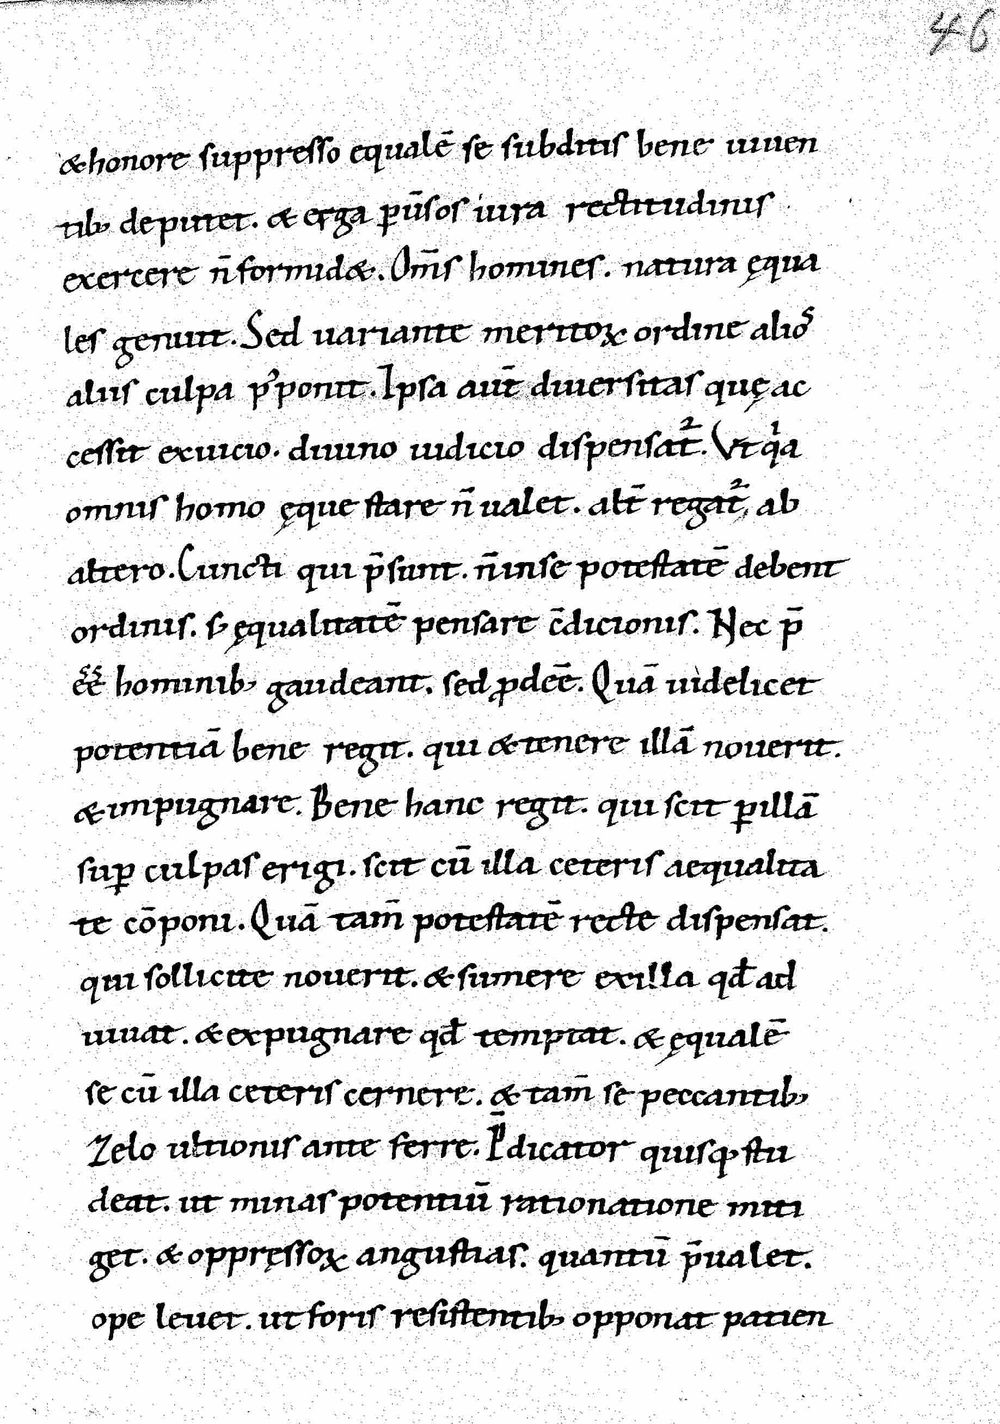 46
& honore suppresso equalē se subditis bene uiuen
tib; deputet. & erga ꝑūsos iura rectitudinis
exercere n̄ formid&. Om̄s homines. natura ęqua
les genuit. Sed uariante meritoꝝ ordine alios
aliis culpa p̄ponit. Ipsa aut̄ diuersitas quę ac
cessit ex uicio. diuino iudicio dispensat̄. Vt qͥa
omnis homo ęque stare n̄ ualet. alt̄ regat̄ ab
altero. Cuncti qui p̄sunt. n̄ in se potestatē debent
ordinis. s; ęqualitatē pensare c̄dicionis. Nec p̄
ēē hominib; gaudeant. sed ꝓdeē. Quā uidelicet
potentiā bene regit. qui & tenere illā nouerit.
& impugnare. Bene hanc regit. qui scit ꝑ illā
suꝑ culpas erigi. scit cū illa ceteris aequalita
te cōponi. Quā tam̄ potestatē recte dispensat.
qui sollicite nouerit. & sumere ex illa qd̄ ad
iuuat. & expugnare qd̄ temptat. & ęqualē
se cū illa ceteris cernere. & tam̄ se peccantib;
Zelo ultionis ante ferre. P̄dicator quisq; stu
deat. ut minas potentiū rationatione miti
get. & oppręssoꝝ angustias. quantū p̄ualet.
ope leuet. ut foris resistentib; opponat patien